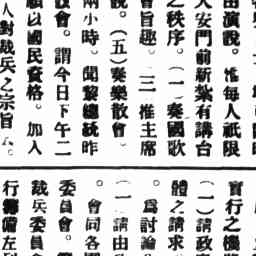 出演說。惟每人祇限
大安門前新紮有講台
之秩序。(一)奏國歌
會旨趣。(二)推主席
說。(五)奏樂散會。
兩小時。聞黎總統昨
散會。謂今日下午二
願以國民資格。加入
人對裁兵之宗旨
實行之機
(一)請政
體之請求
爲討論
(一)請由
會同各
委員會。
裁兵委員會
行 左列